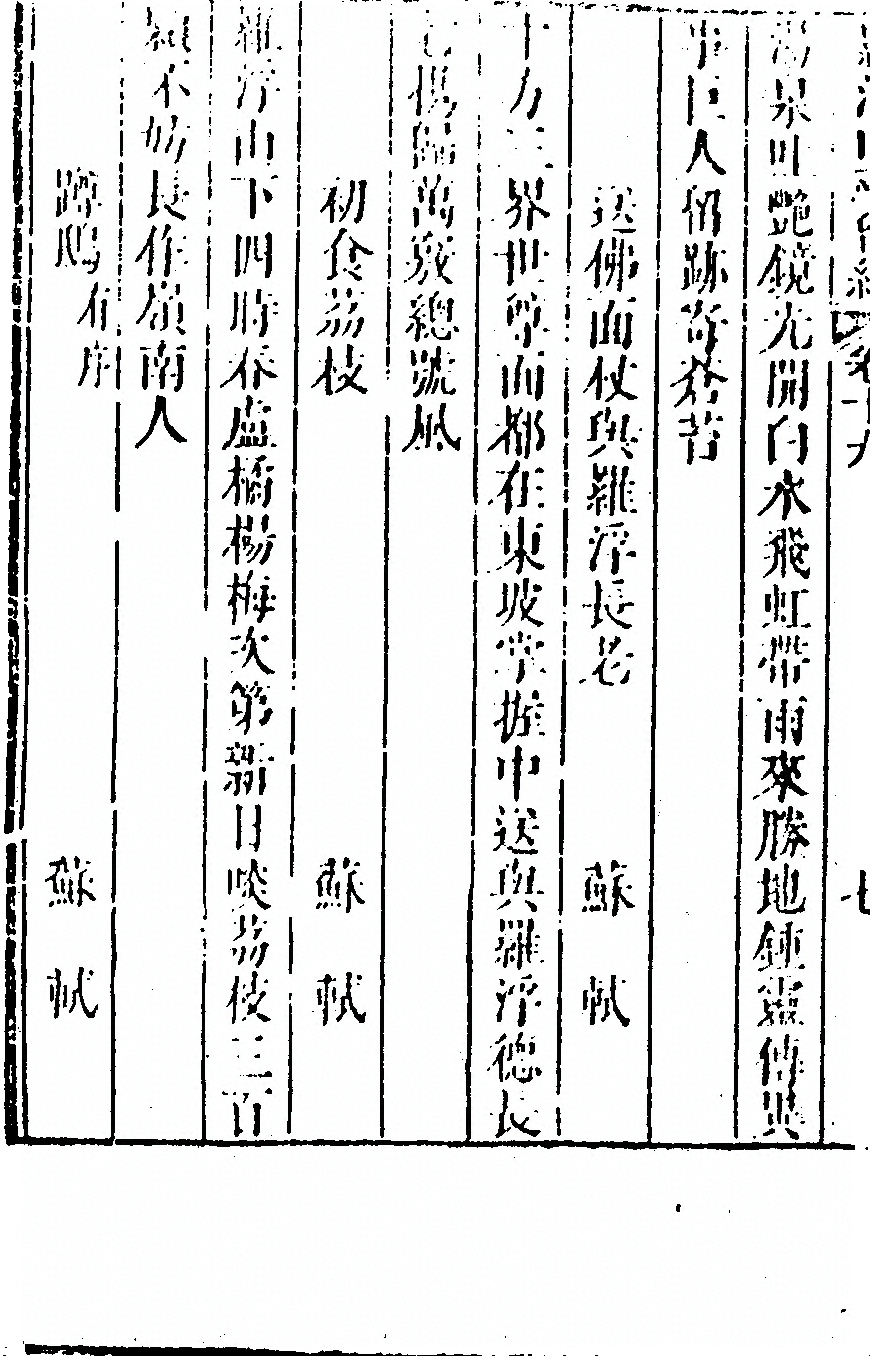 羅浮山志會編卷十九 七
湯泉吐艷鏡光開白水飛虹帶雨來勝地鍾靈傳異
事巨人留跡奇蒼苔
送佛面杖與羅浮長老 蘇軾
十方三界世尊面都在東坡掌握中送與羅浮德長
老攜歸萬竅總號風
初食荔枝 蘇軾
羅浮山下四時春盧橘楊梅次第新日啖荔枝三百
顆不妨長作嶺南人
蹲鴟有序 蘇軾